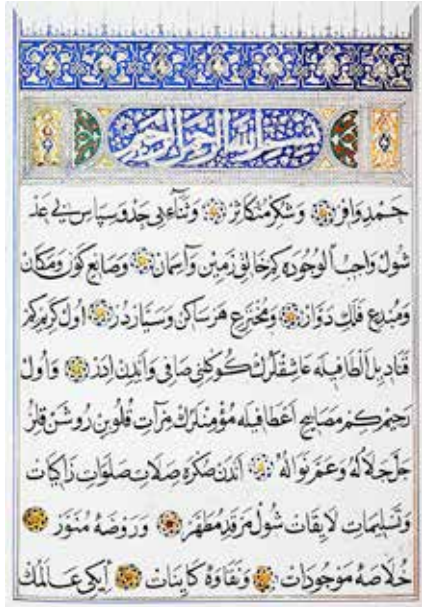 بسم الله الرحمن الرحيم
حمد وافر و شكر متكاثر و ثناء بى حد و سپاس بى عد
شول واجب الوجوده كه خالق زمين و آسمان و صانع كون و مكان
و مبدع فلك دوار و مخترع هر ساكن و سيار در اول كريم كم
قناديل الطافيله عاشقلرك كوكلنى صافى و اندن ايدر و اول
رحيم كم مصابيح اعطافيله مؤمنلرك مرآت قلوبن روشن قلر
جل جلاله و عم نواله اندن صكره صلات صلوات زاكيات
و تسليمات لايقات شول مرقد مطهر و روضه منور
خلاصه موجودات و نقاوه كاينات ايكى عالمك